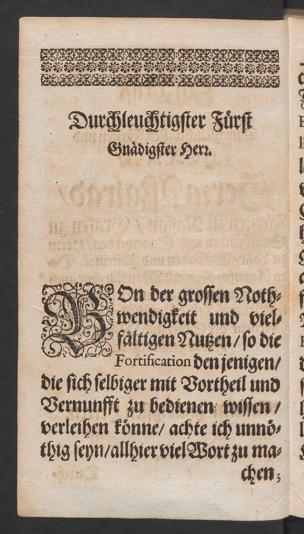 Durchleuchtigster Fürst
Gnädigster Herr.
VOn der grossen Noth-
wendigkeit und viel-
fältigen Nutzen/ so die
Fortification den jenigen/
die sich selbiger mit Vortheil und
Vernunfft zu bedienen wissen /
verleihen könne/ achte ich unnö-
thig seyn/ allhier viel Wort zu ma-
chen;